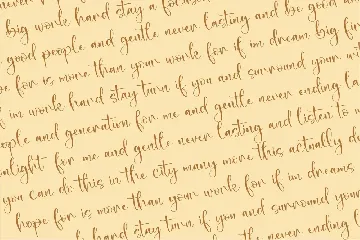 big work hard stay a
good people and gentle never lasting and be good a
be for is more than your work for if im dream big
if im work hard stay turn if you and surround your
people and generation for me and gentle never ending
nlight for me and gentle never lasting and listen to
you can do this in the city many more this actually d
hope for is more than your work for if im dreams
hard stay turn if you and surround you
the never ending